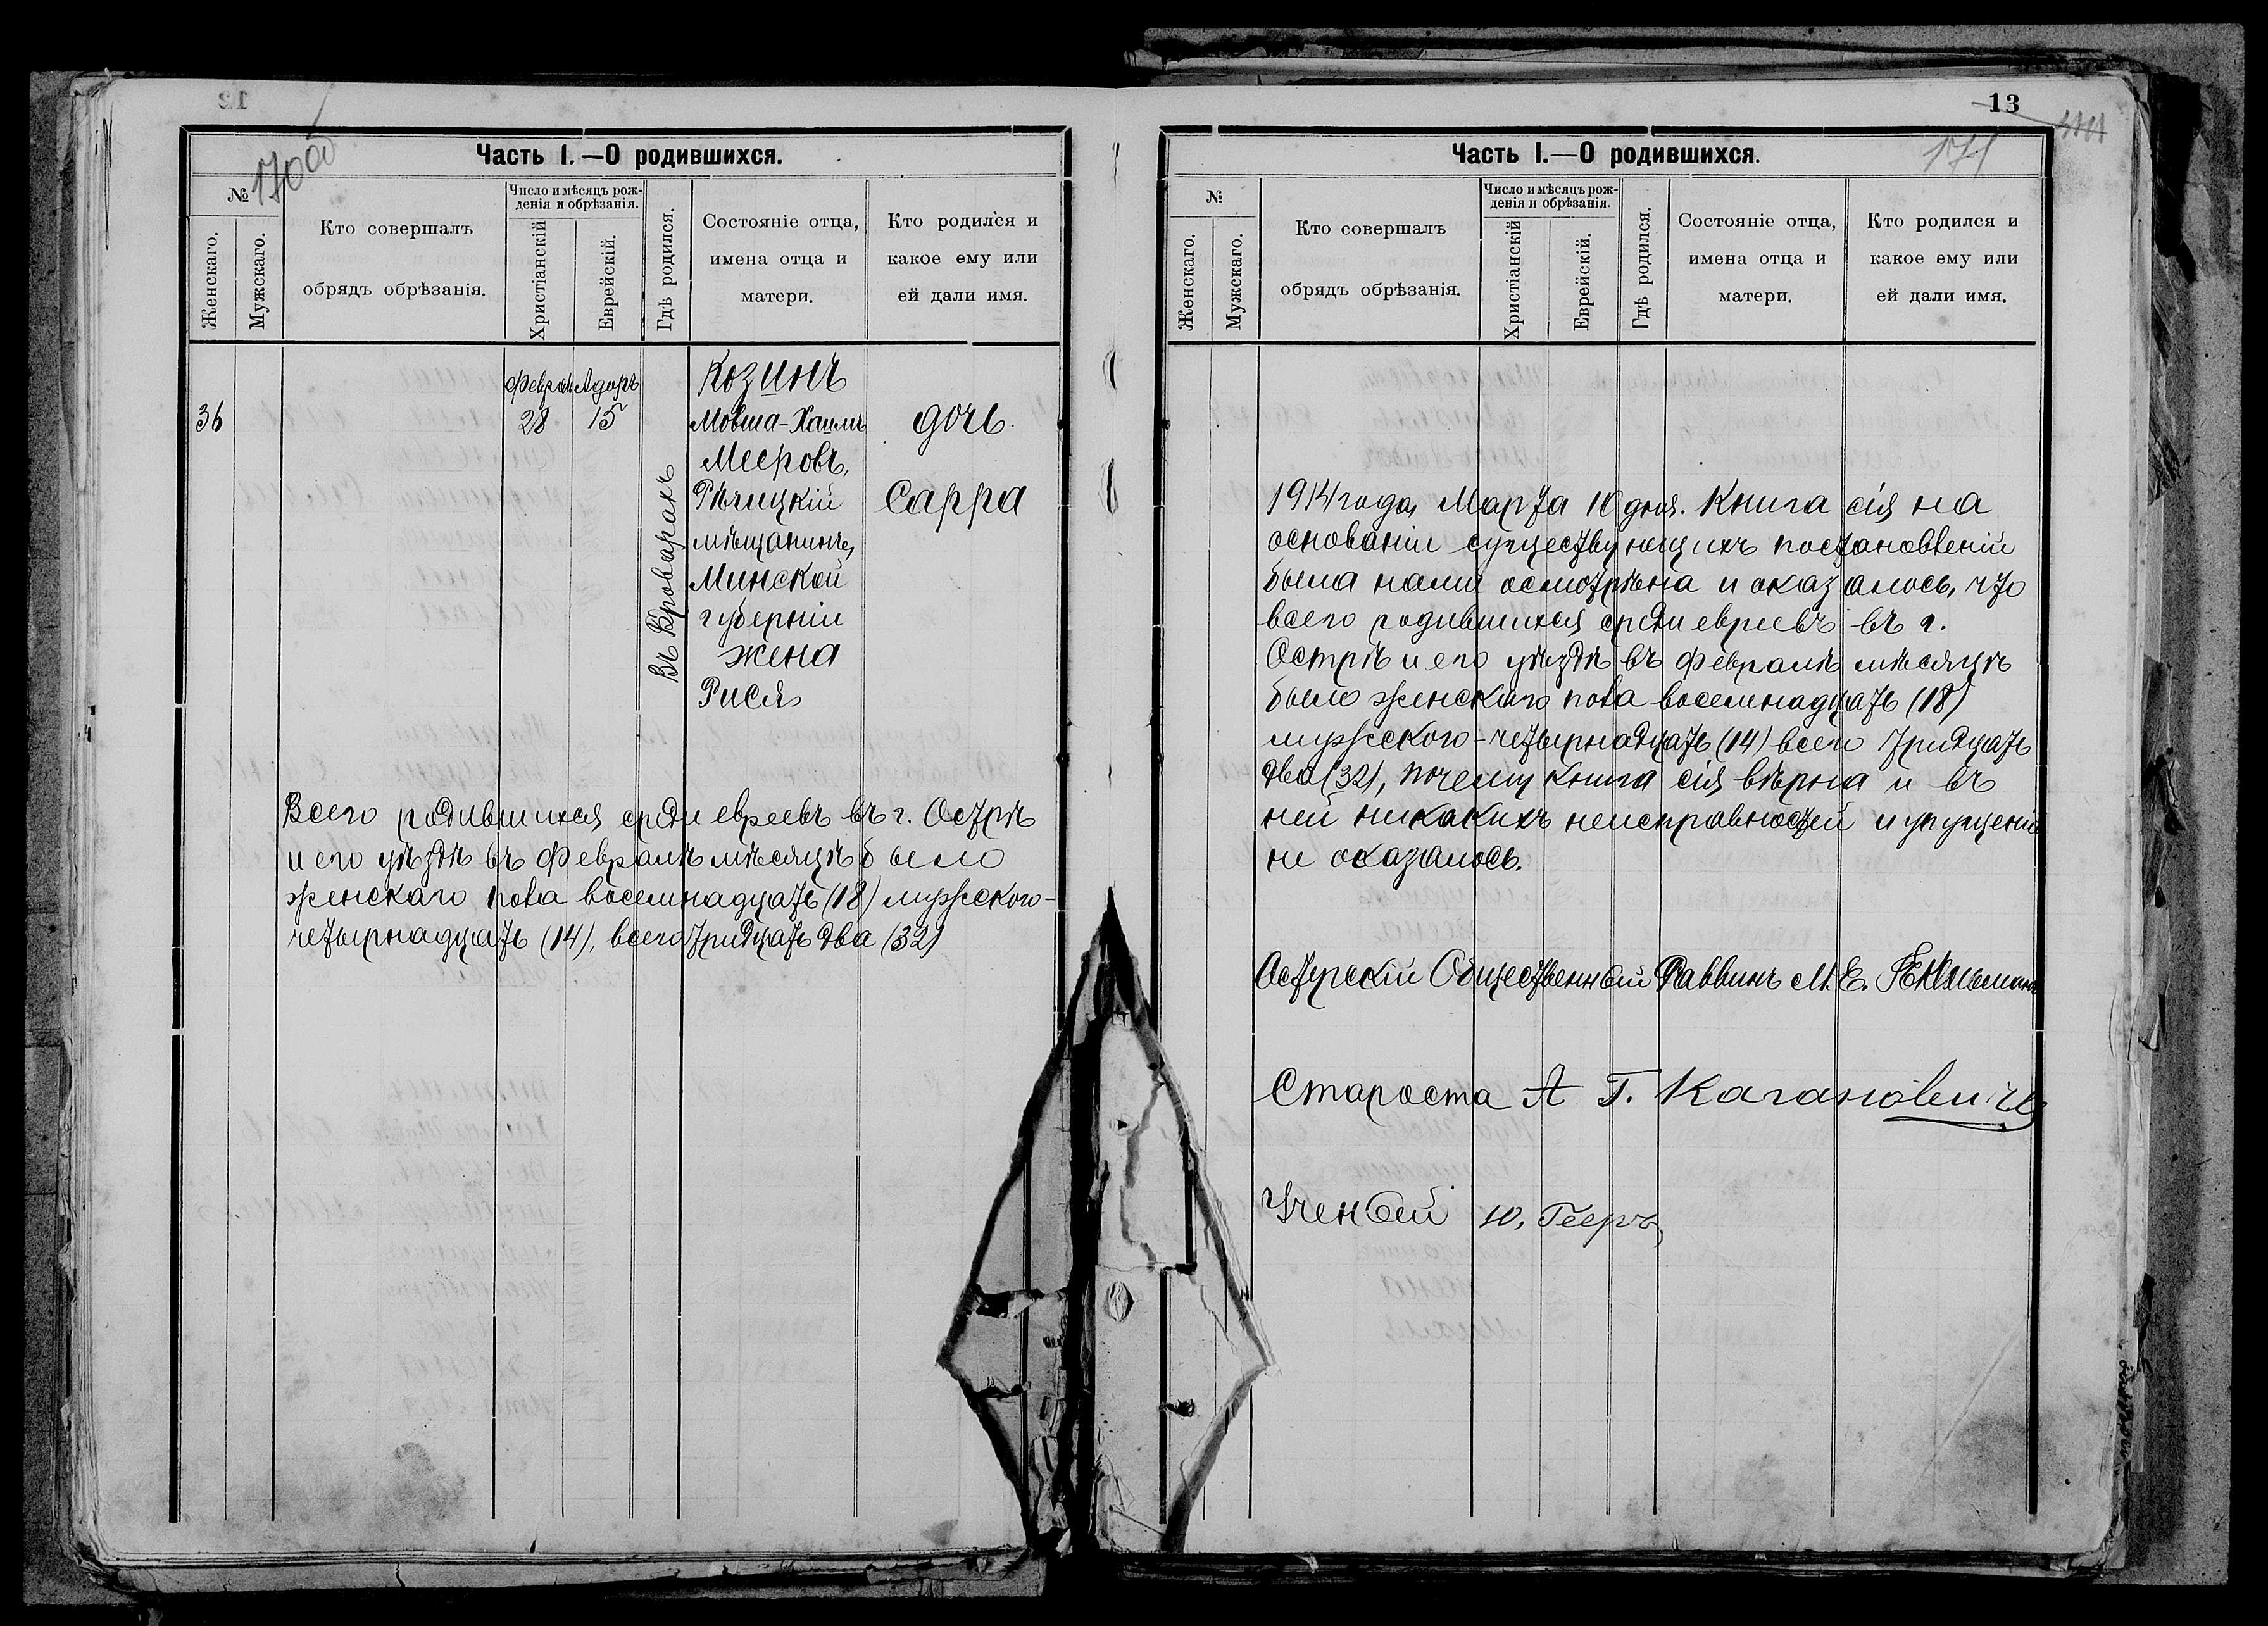 170об
Часть I.—О родившихся.
№
Женскаго.
Мужскаго.
Кто совершалъ
обрядъ обрѣзанія.
Число и мѣсяцъ рож-
денія и обрѣзанія.
Христіанскій
Еврейскій.
Гдѣ родился.
Состояніе отца,
имена отца и
матери.
Кто родился и
какое ему или
ей дали имя.
36
Февраль
28
Адаръ
15
Въ Броварахъ
Козинъ
Мовша-Хаимъ
Мееровъ,
Рѣчицкій
мѣщанинъ,
Минской
губерніи
жена
Рися
дочь
Сарра
Всего родившихся среди евреевъ въ г. Острѣ
и его уѣздѣ въ Февралѣ мѣсяцѣ было
женскаго пола восемнадцать (18) мужского-
четырнадцать (14), всего тридцать два (32)
13
171
Часть I.—О родившихся.
№
Женскаго.
Мужскаго.
Кто совершалъ
обрядъ обрѣзанія.
Число и мѣсяцъ рож-
денія и обрѣзанія.
Христіанскій
Еврейскій.
Гдѣ родился.
Состояніе отца,
имена отца и
матери.
Кто родился и
какое ему или
ей дали имя.
1914 года, Марта 10 дня. Книга сія на
основаніи существующихъ постановленій
была нами осмотрѣна и оказалось, что
всего родившихся среди евреевъ въ г.
Острѣ и его уѣздѣ въ Февралѣ мѣсяцѣ
было женскаго пола восемнадцать (18)
мужского-четырнадцать (14) всего тридцать
два (32), почему книга сія вѣрна и въ
ней никакихъ неисправностей и упущеній
не оказалось.
Остерскій Общественный Раввинъ М. Е.
Староста А Г. Кагановичъ
Ученый Ю. Гееръ